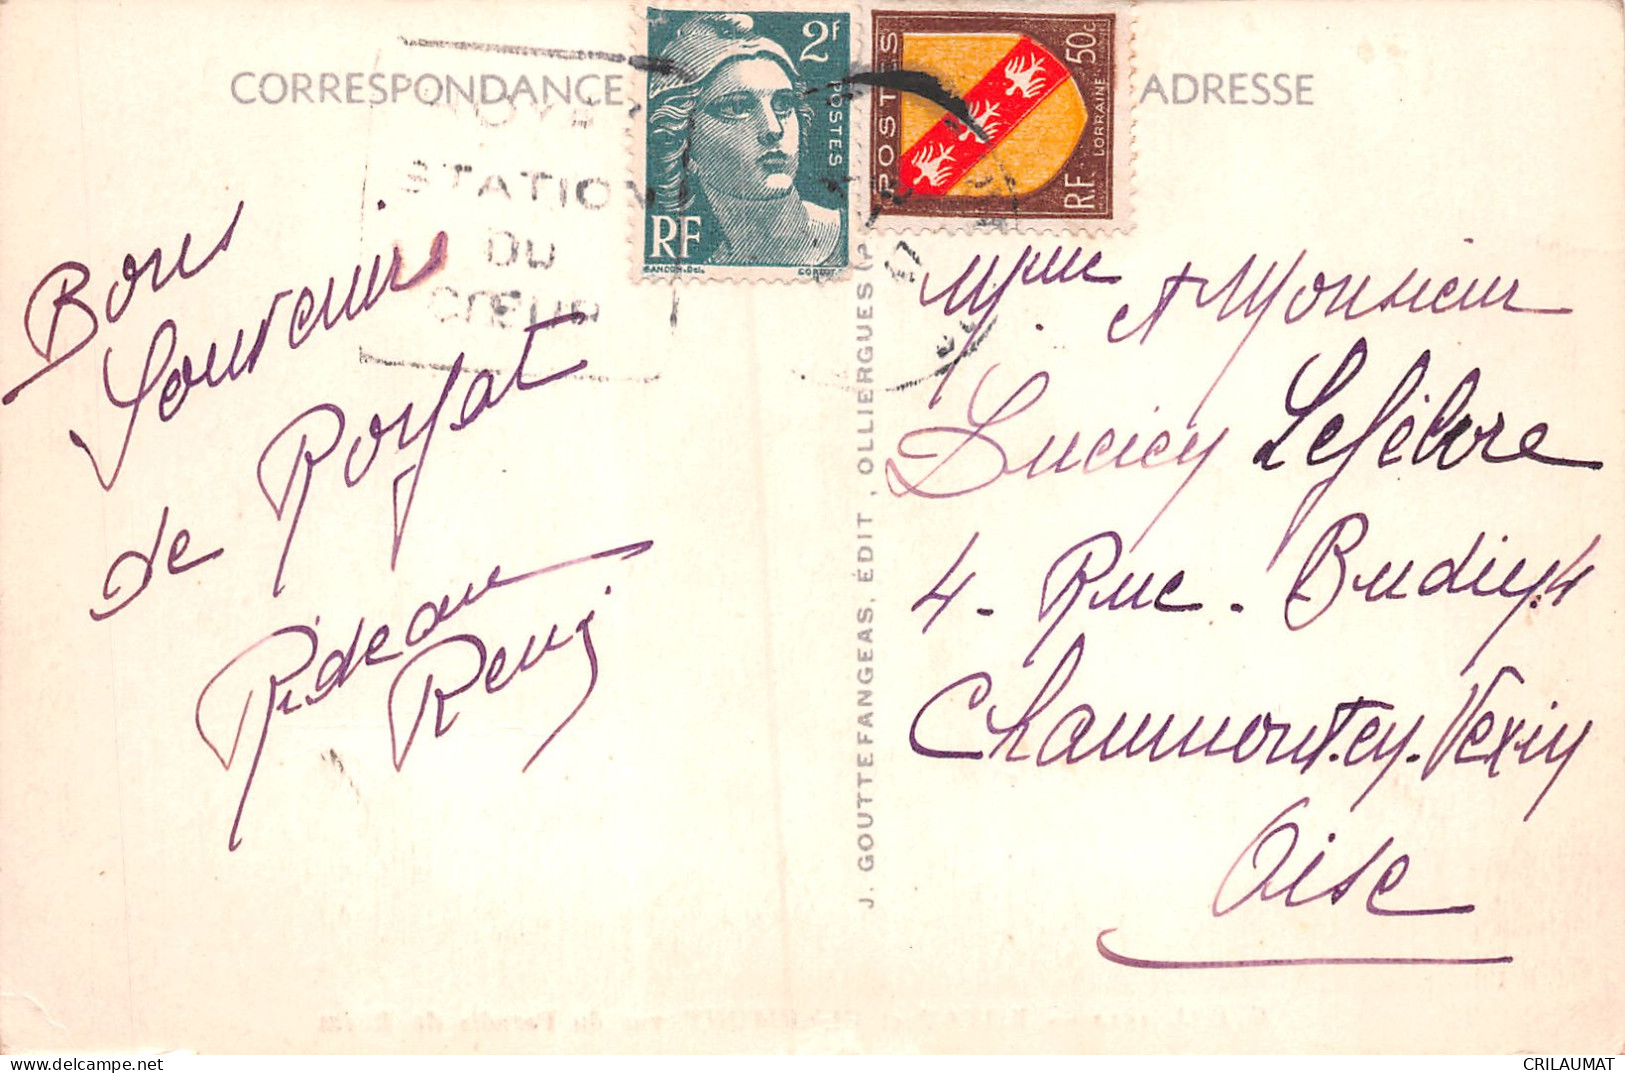 CORRESPONDANCE
ADRESSE
2f
POSTES
RF
GANDON-Del.
POSTES
50c
LORRAINE
R.F.
STATION
DU
CŒUR
Bons
Souvenirs
de Royat
Rideau
René
Mme et Monsieur
Lucien Lefèbvre
4 - Rue -
Chaumont-en-Vexin
Oise
J. GOUTTEFANGEAS, ÉDIT, OLLIERGUES (P
CRILAUMAT